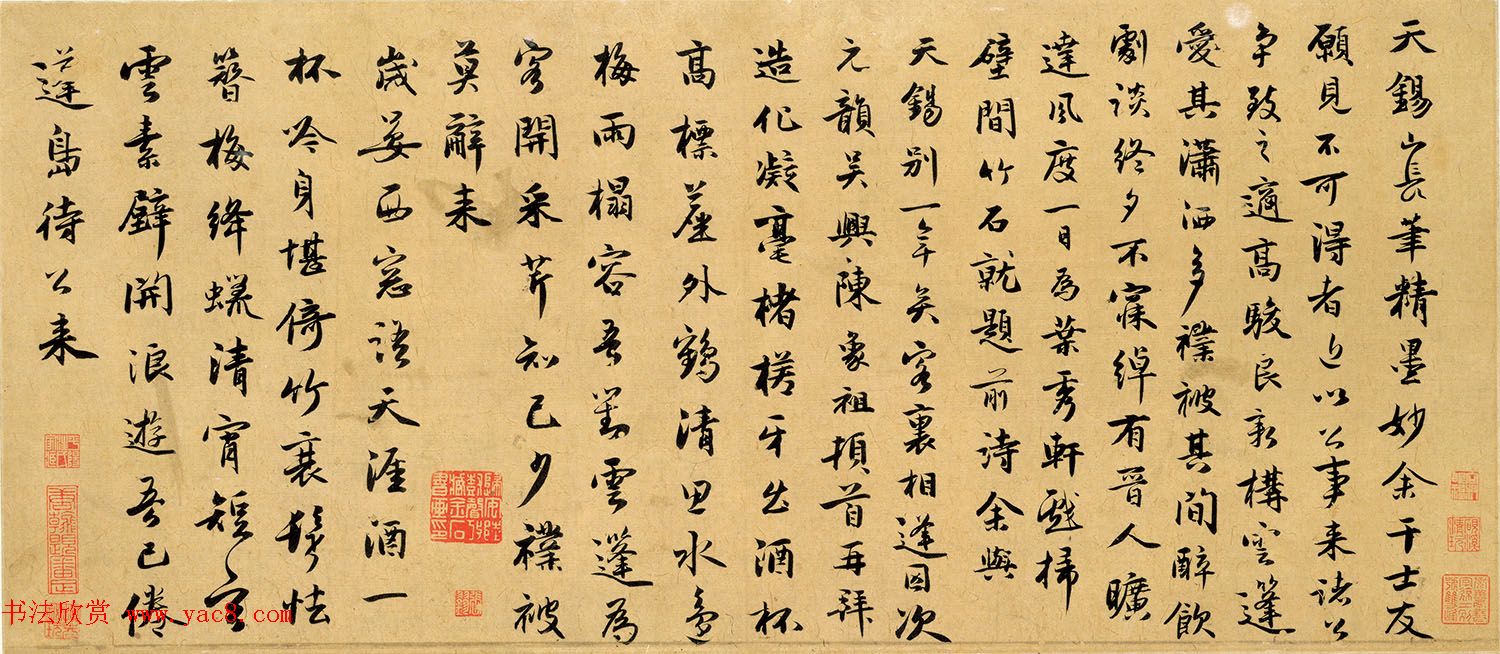 天錫山長筆精墨妙余干士友
願見不可得者近以公事来諸公
争致之適高駿良新構雲篷
愛其瀟洒多襆被其間醉飲
劇談終夕不寐綽有晉人曠
達風度一日為葉秀軒戲掃
壁間竹石就題前詩余與
天錫別一年矣客裏相逢因次
元韻吴興陳象祖頓首再拜
造化凝毫楮槎牙出酒杯
高標塵外鶴清思水邊
梅雨榻容吾對雲篷為
客開采芹知己少襆被
莫辭来
歲晏西窓語天涯酒一
杯吟身堪倚竹衰鬢怯
簪梅絳蠟清宵短玄
雲素壁開浪遊吾已倦
蓬島待公来
书法欣赏 www.yac8.com